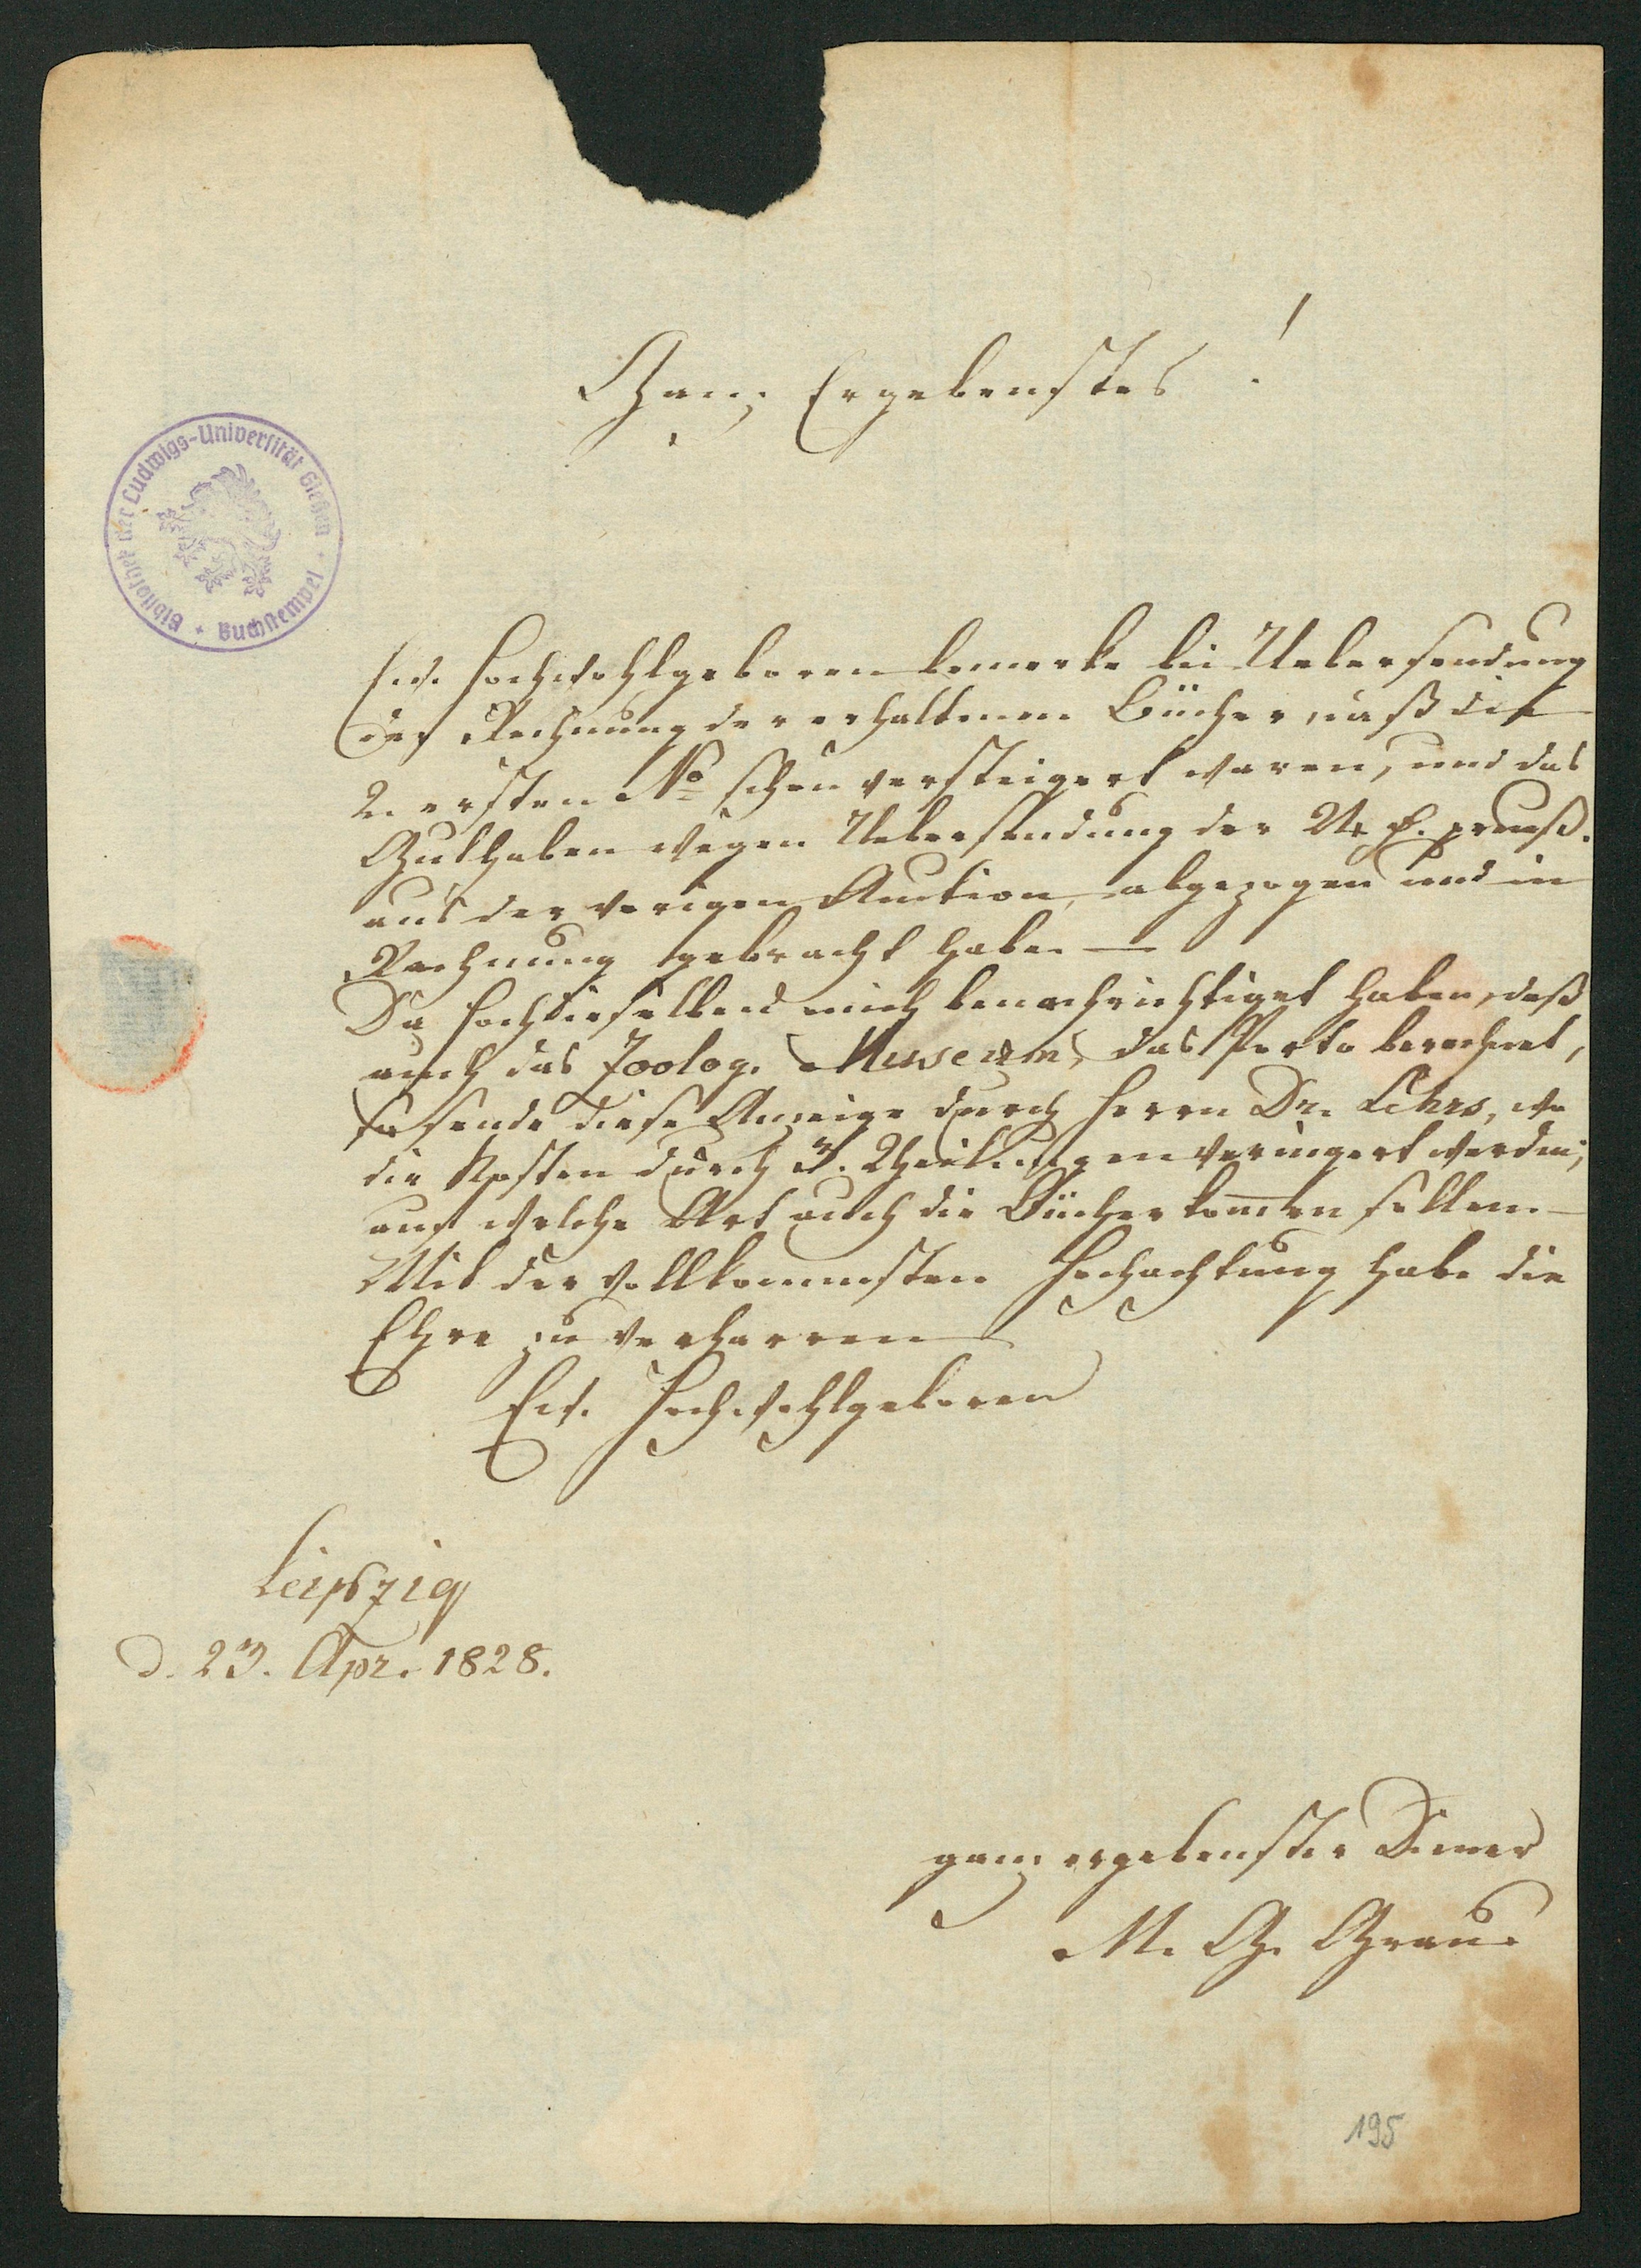 Ganz Ergebenstes!
Bibliothek der Ludwigs-Universität Gießen
* Buchstempel *
Ew. Hochwohlgeboren bemerke bei Uebersendung
der Rechnung der erhaltenen Bücher, daß die
2. ersten No schon versteigert waren, und das
Guthaben wegen Uebersendung der preuß.
aus der vorigen Auction, abgezogen und in
Rechnung gebracht habe. —
Da Hochdieselben mich benachrichtiget haben, daß
auch das Zoolog. Museum, das Porto berechnet,
so sende diese Anzeige durch Herrn Dr. Lehrs, wo
die Kosten durch 3. Theilungen veringert werden;
auf welche Art auch die Bücher kommen sollen. —
Mit der vollkommensten Hochachtung habe die
Ehre zu verharren
Ew. Hochwohlgeboren
Leipzig
d. 23. Apr. 1828.
ganz ergebenster Diener
M. G. Grau.
195